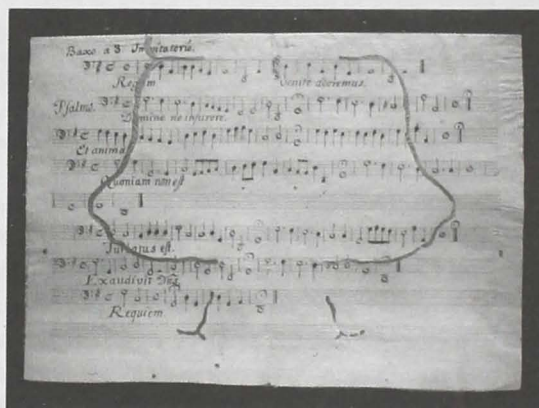 Baxo a 3. Invitatorio.
Regem Venite adoremus.
Psalmo. Domine ne in furore.
Et anima
Quoniam non est
Turbatus est.
Exaudivit
Requiem